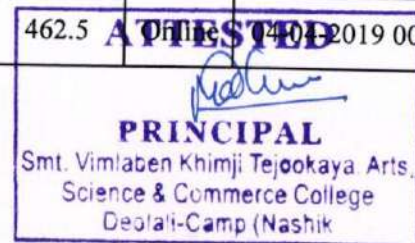 462.5 Online 04-04-2019 00
ATTESTED
PRINCIPAL
Smt. Vimlaben Khimji Tejookaya Arts,
Science & Commerce College
Deolali-Camp (Nashik